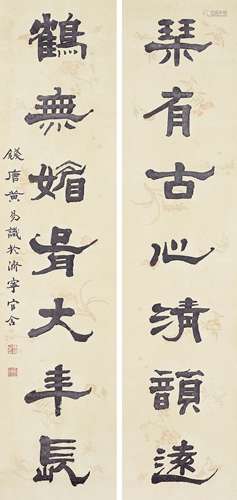 琹有古心清韻遠
鶴無媚骨大年長
錢唐黃易識於濟寧官舍